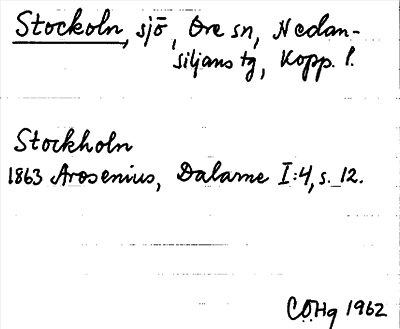 Stockoln, sjö, Ore sn, Nedan-
siljans tg, Kopp. l.
Stockholn
1863 Arosenius, Dalarne I:4, s. 12.
CÖHg 1962